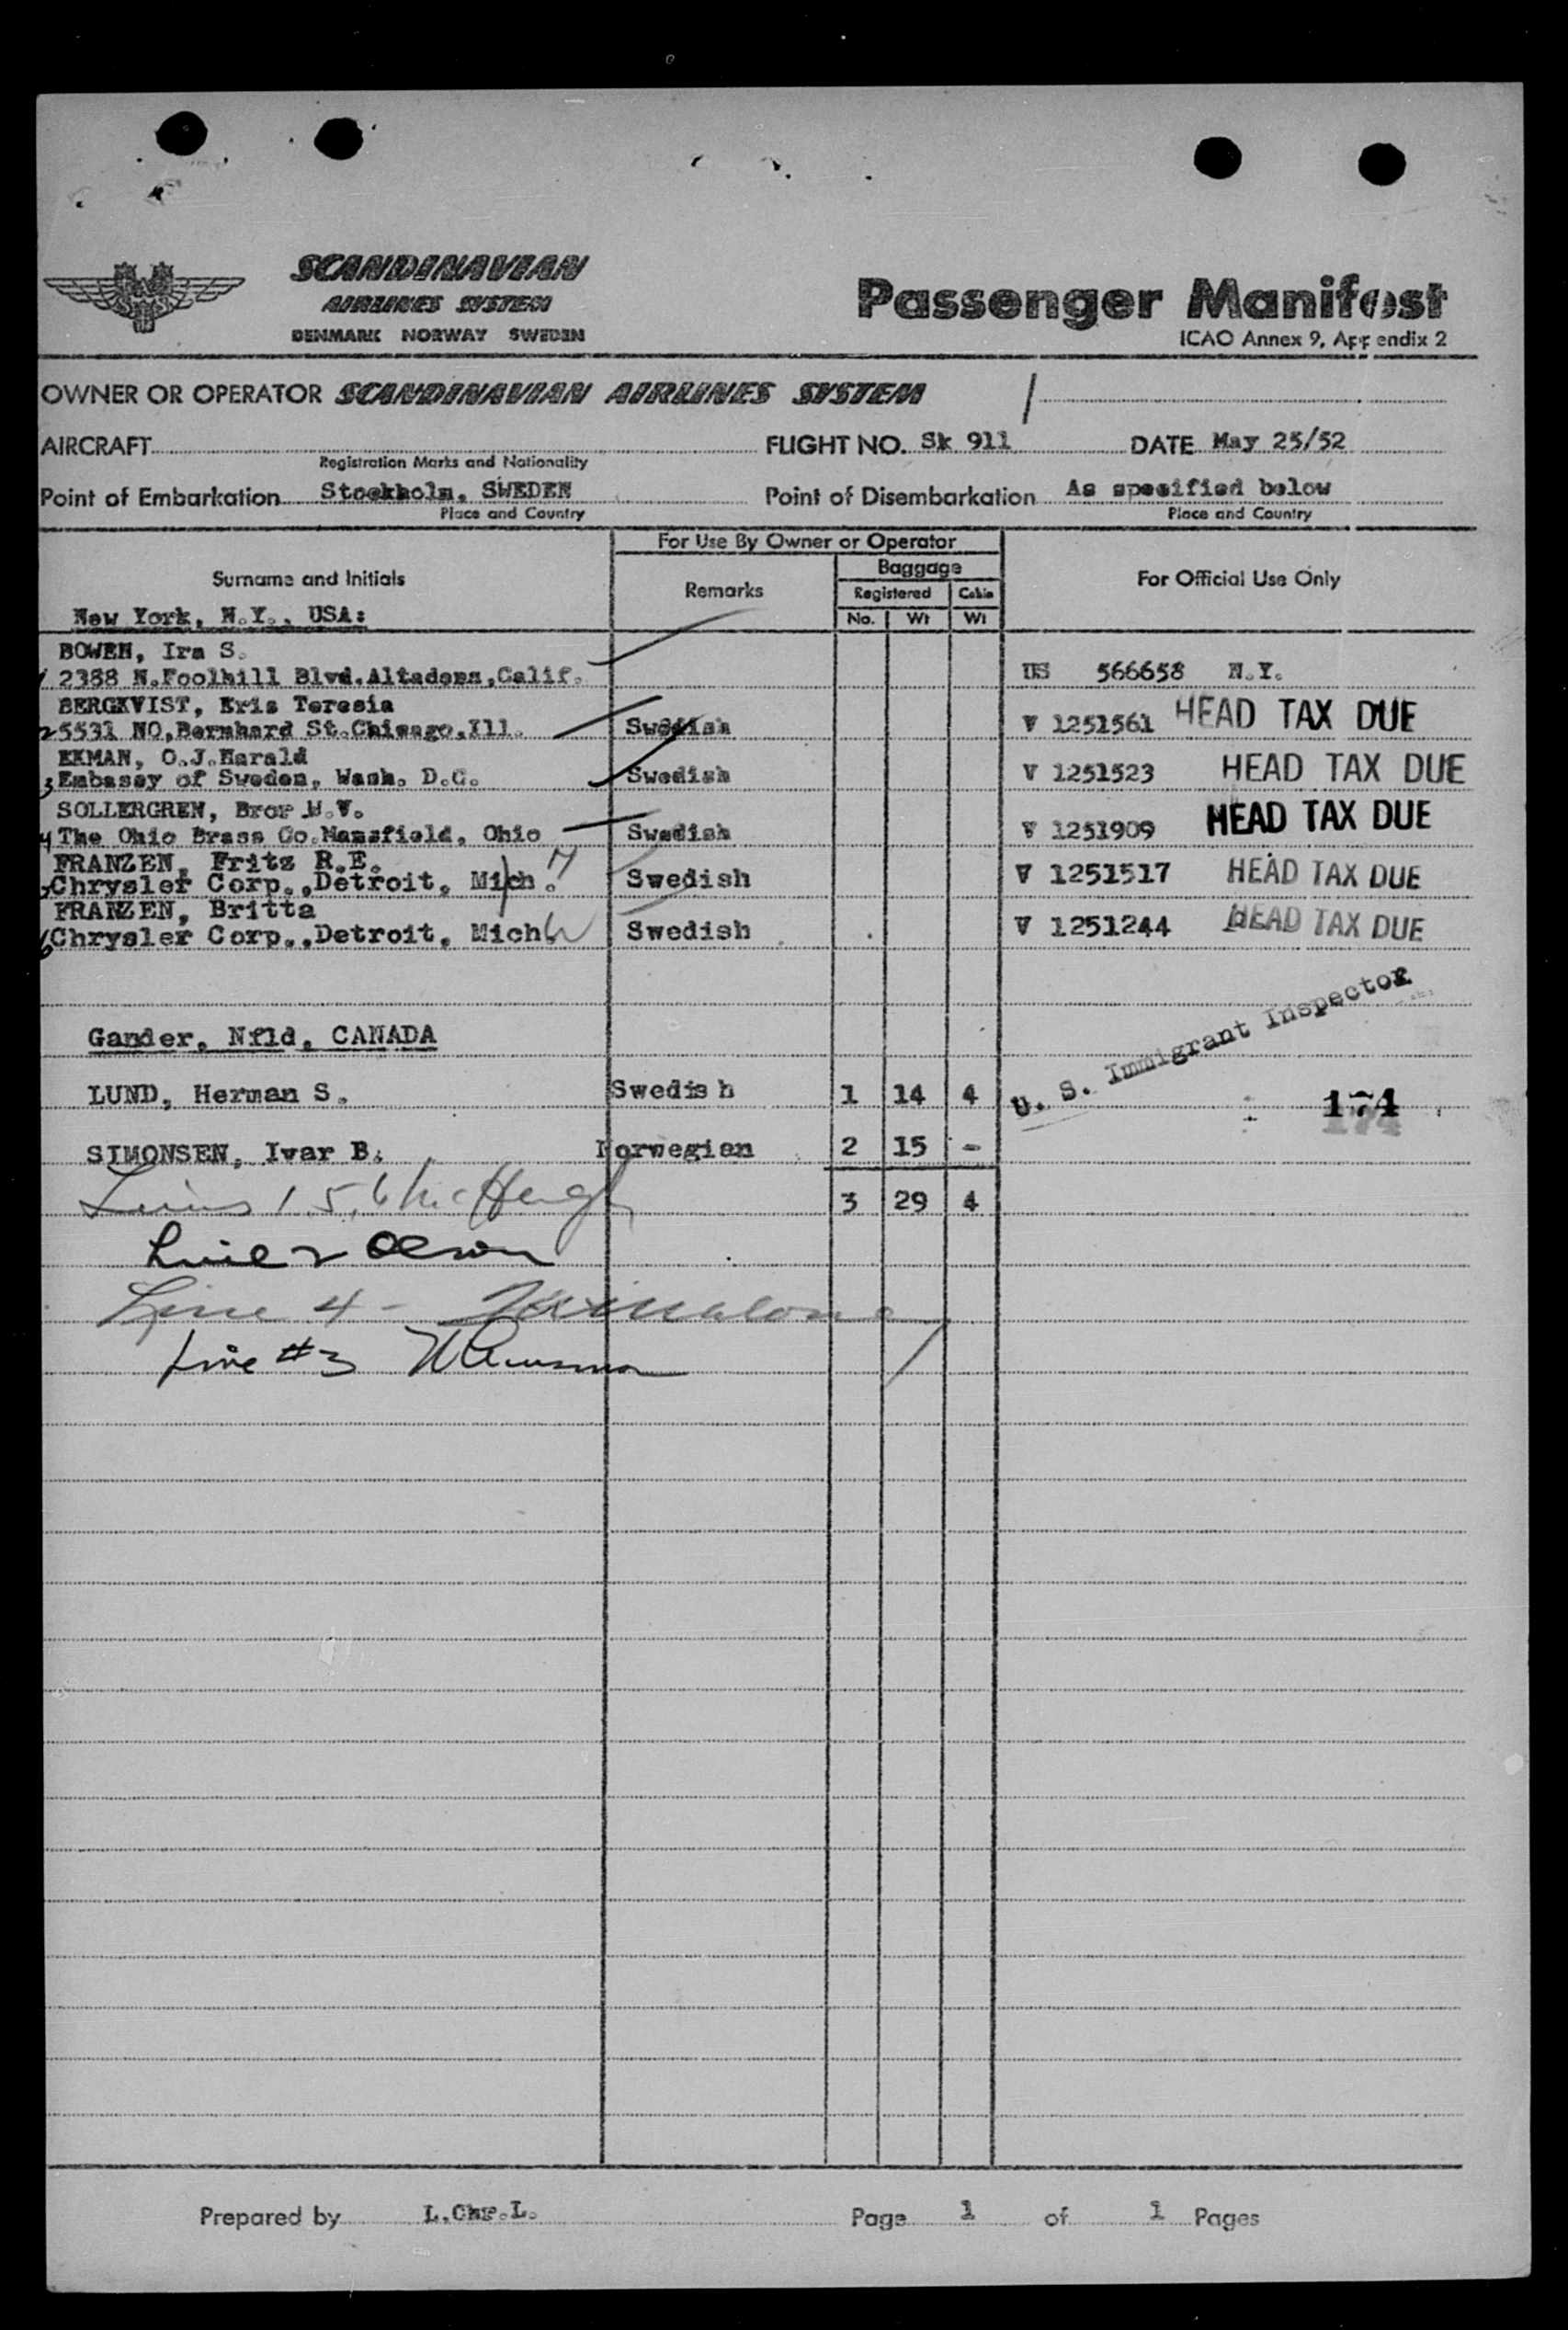 SCANDINAVIAN
AIRLINES SYSTEM
DENMARK NORWAY SWEDEN
Passenger Manifest
ICAO Annex 9, Appendix 2
OWNER OR OPERATOR SCANDINAVIAN AIRLINES SYSTEM
AIRCRAFT FLIGHT NO. Sk 911 DATE May 25/52
Registration Marks and Nationality
Point of Embarkation Stockholm, SWEDEN Point of Disembarkation As specified below
Place and Country Place and Country
For Use By Owner or Operator
Surname and Initials Remarks Baggage For Official Use Only
Registered Cabin
New York, N.Y., USA: No. Wt Wt
BOWEN, Ira S.
1 2388 N.Foolhill Blvd.Altadena,Calif. US 566658 N.Y.
BERGKVIST, Kris Teresia
2 5531 NO,Bernhard St.Chicago,Ill. Swedish V 1251561 HEAD TAX DUE
EKMAN, O.J.Harald
3 Embassy of Sweden, Wash. D.C. Swedish V 1251523 HEAD TAX DUE
SOLLERGREN, Bror M.V.
4 The Ohio Brass Co.Mansfield, Ohio Swedish V 1251909 HEAD TAX DUE
FRANZEN, Fritz R.E.
Chrysler Corp.,Detroit, Mich. Swedish V 1251517 HEAD TAX DUE
FRANZEN, Britta
6 Chrysler Corp.,Detroit, Mich. Swedish V 1251244 HEAD TAX DUE
U. S. Immigrant Inspector
174
Gander, Nfld, CANADA
LUND, Herman S. Swedish 1 14 4
SIMONSEN, Ivar B. Norwegian 2 15 -
Lines 1, 5, 6 3 29 4
Line 2 Olson
Line 4 -
Line #3
Prepared by L.Chr.L. Page 1 of 1 Pages